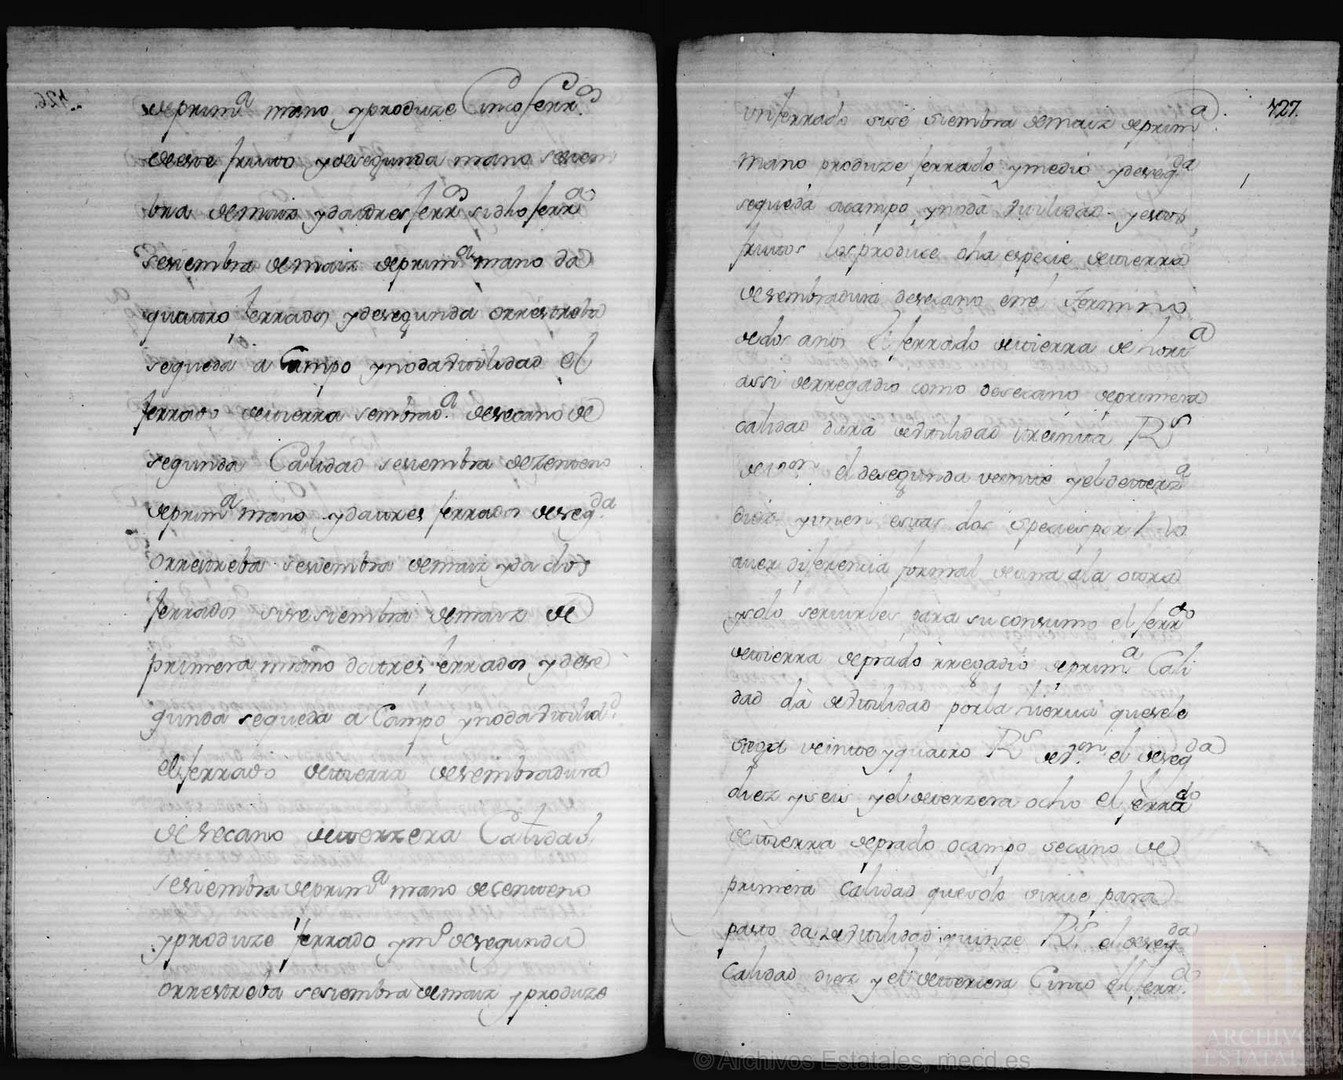 de prim.ª mano y produze Cinco ferr.os
de este fruto y de segunda mano se siem
bra de maiz y da tres ferr.os si dho ferr.do
se siembra de maiz de prim.ª mano da
quatro ferrados y de segunda o rrestreba
se queda a Campo y no da utilidad el
ferrado de tierra sembrad.ª de secano de
segunda Calidad se siembra de zenteno
de prim.ª mano y da tres ferrados de seg.da
o rrestreba se siembra de maiz y da dos
ferrados si se siembra de maiz de
primera mano da tres ferrados y de se
gunda se queda a Campo y no da utilid.d
el ferrado de tierra de sembradura
de secano de terzera Calidad
se siembra de prim.ª mano de Centeno
y produze ferrado y m.º de segunda
o rrestreba se siembra de maiz y produze
727.
un ferrado si se siembra de maiz de prim.ª
mano produze ferrado y medio y de seg.da
se queda a campo y no da utilidad y estos
frutos los produce dha especie de tierra
de sembradura de secano en el termino
de dos anos El ferrado de tierra de hort.ª
assi de rregadio como de secano de primera
calidad dara de utilidad treinta R.s
de v.on el de segunda veinte y el de terz.ª
diez y unen estas dos especies por no
aver diferencia formal de una a la otra
y solo servirles para su consumo el ferr.do
de tierra de prado rregadio de prim.ª Cali
dad dá de utilidad por la hierva que se le
siega veinte y quatro R.s de v.on el de seg.da
diez y seis y el de terzera ocho el ferrado
de tierra de prado o campo secano de
primera calidad que solo sirve para
pasto da de utilidad quinze R.s el de seg.da
Calidad diez y el de tercera Cinco el ferr.do
© Archivos Estatales, mecd.es
ARCHIVOS
ESTATALES